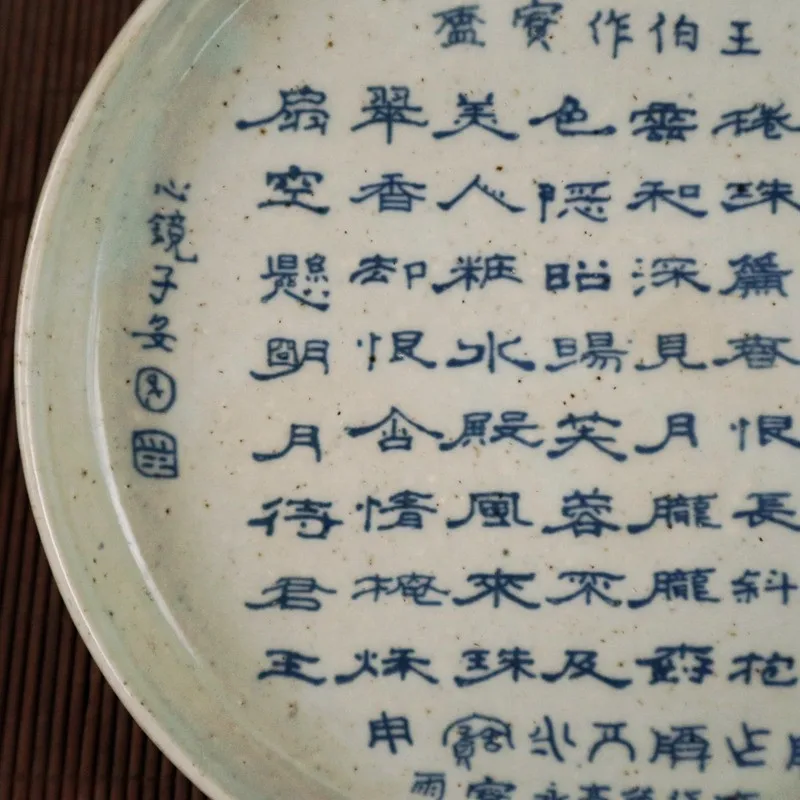 王伯作寶盉
捲珠簾春恨長斜抱
雲和深見月朧朧樹
色隱昭陽芙蓉不及
美人粧水殿風來珠
翠香却恨含情掩秌
扇空懸明月待君王
心鏡子安